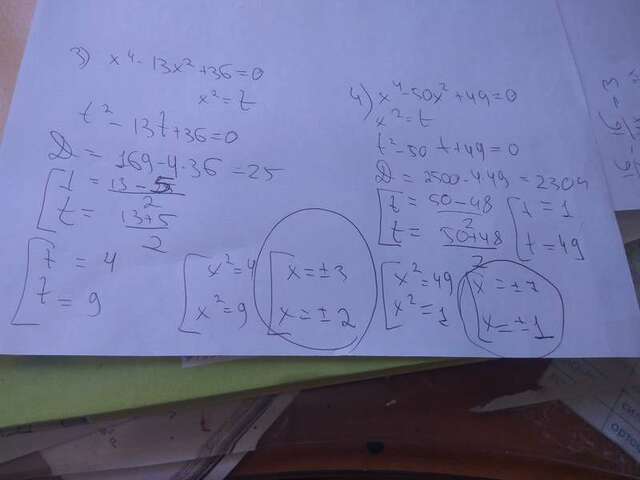 3) x⁴ - 13x² + 36 = 0
x² = t
t² - 13t + 36 = 0
D = 169 - 4·36 = 25
[ t = (13 - 5)/2
t = (13 + 5)/2
[ t = 4
t = 9
[ x² = 4
x² = 9
[ x = ±3
x = ±2
4) x⁴ - 50x² + 49 = 0
x² = t
t² - 50t + 49 = 0
D = 2500 - 4·49 = 2304
[ t = (50 - 48)/2
t = (50 + 48)/2
[ t = 1
t = 49
[ x² = 49
x² = 1
[ x = ±7
x = ±1